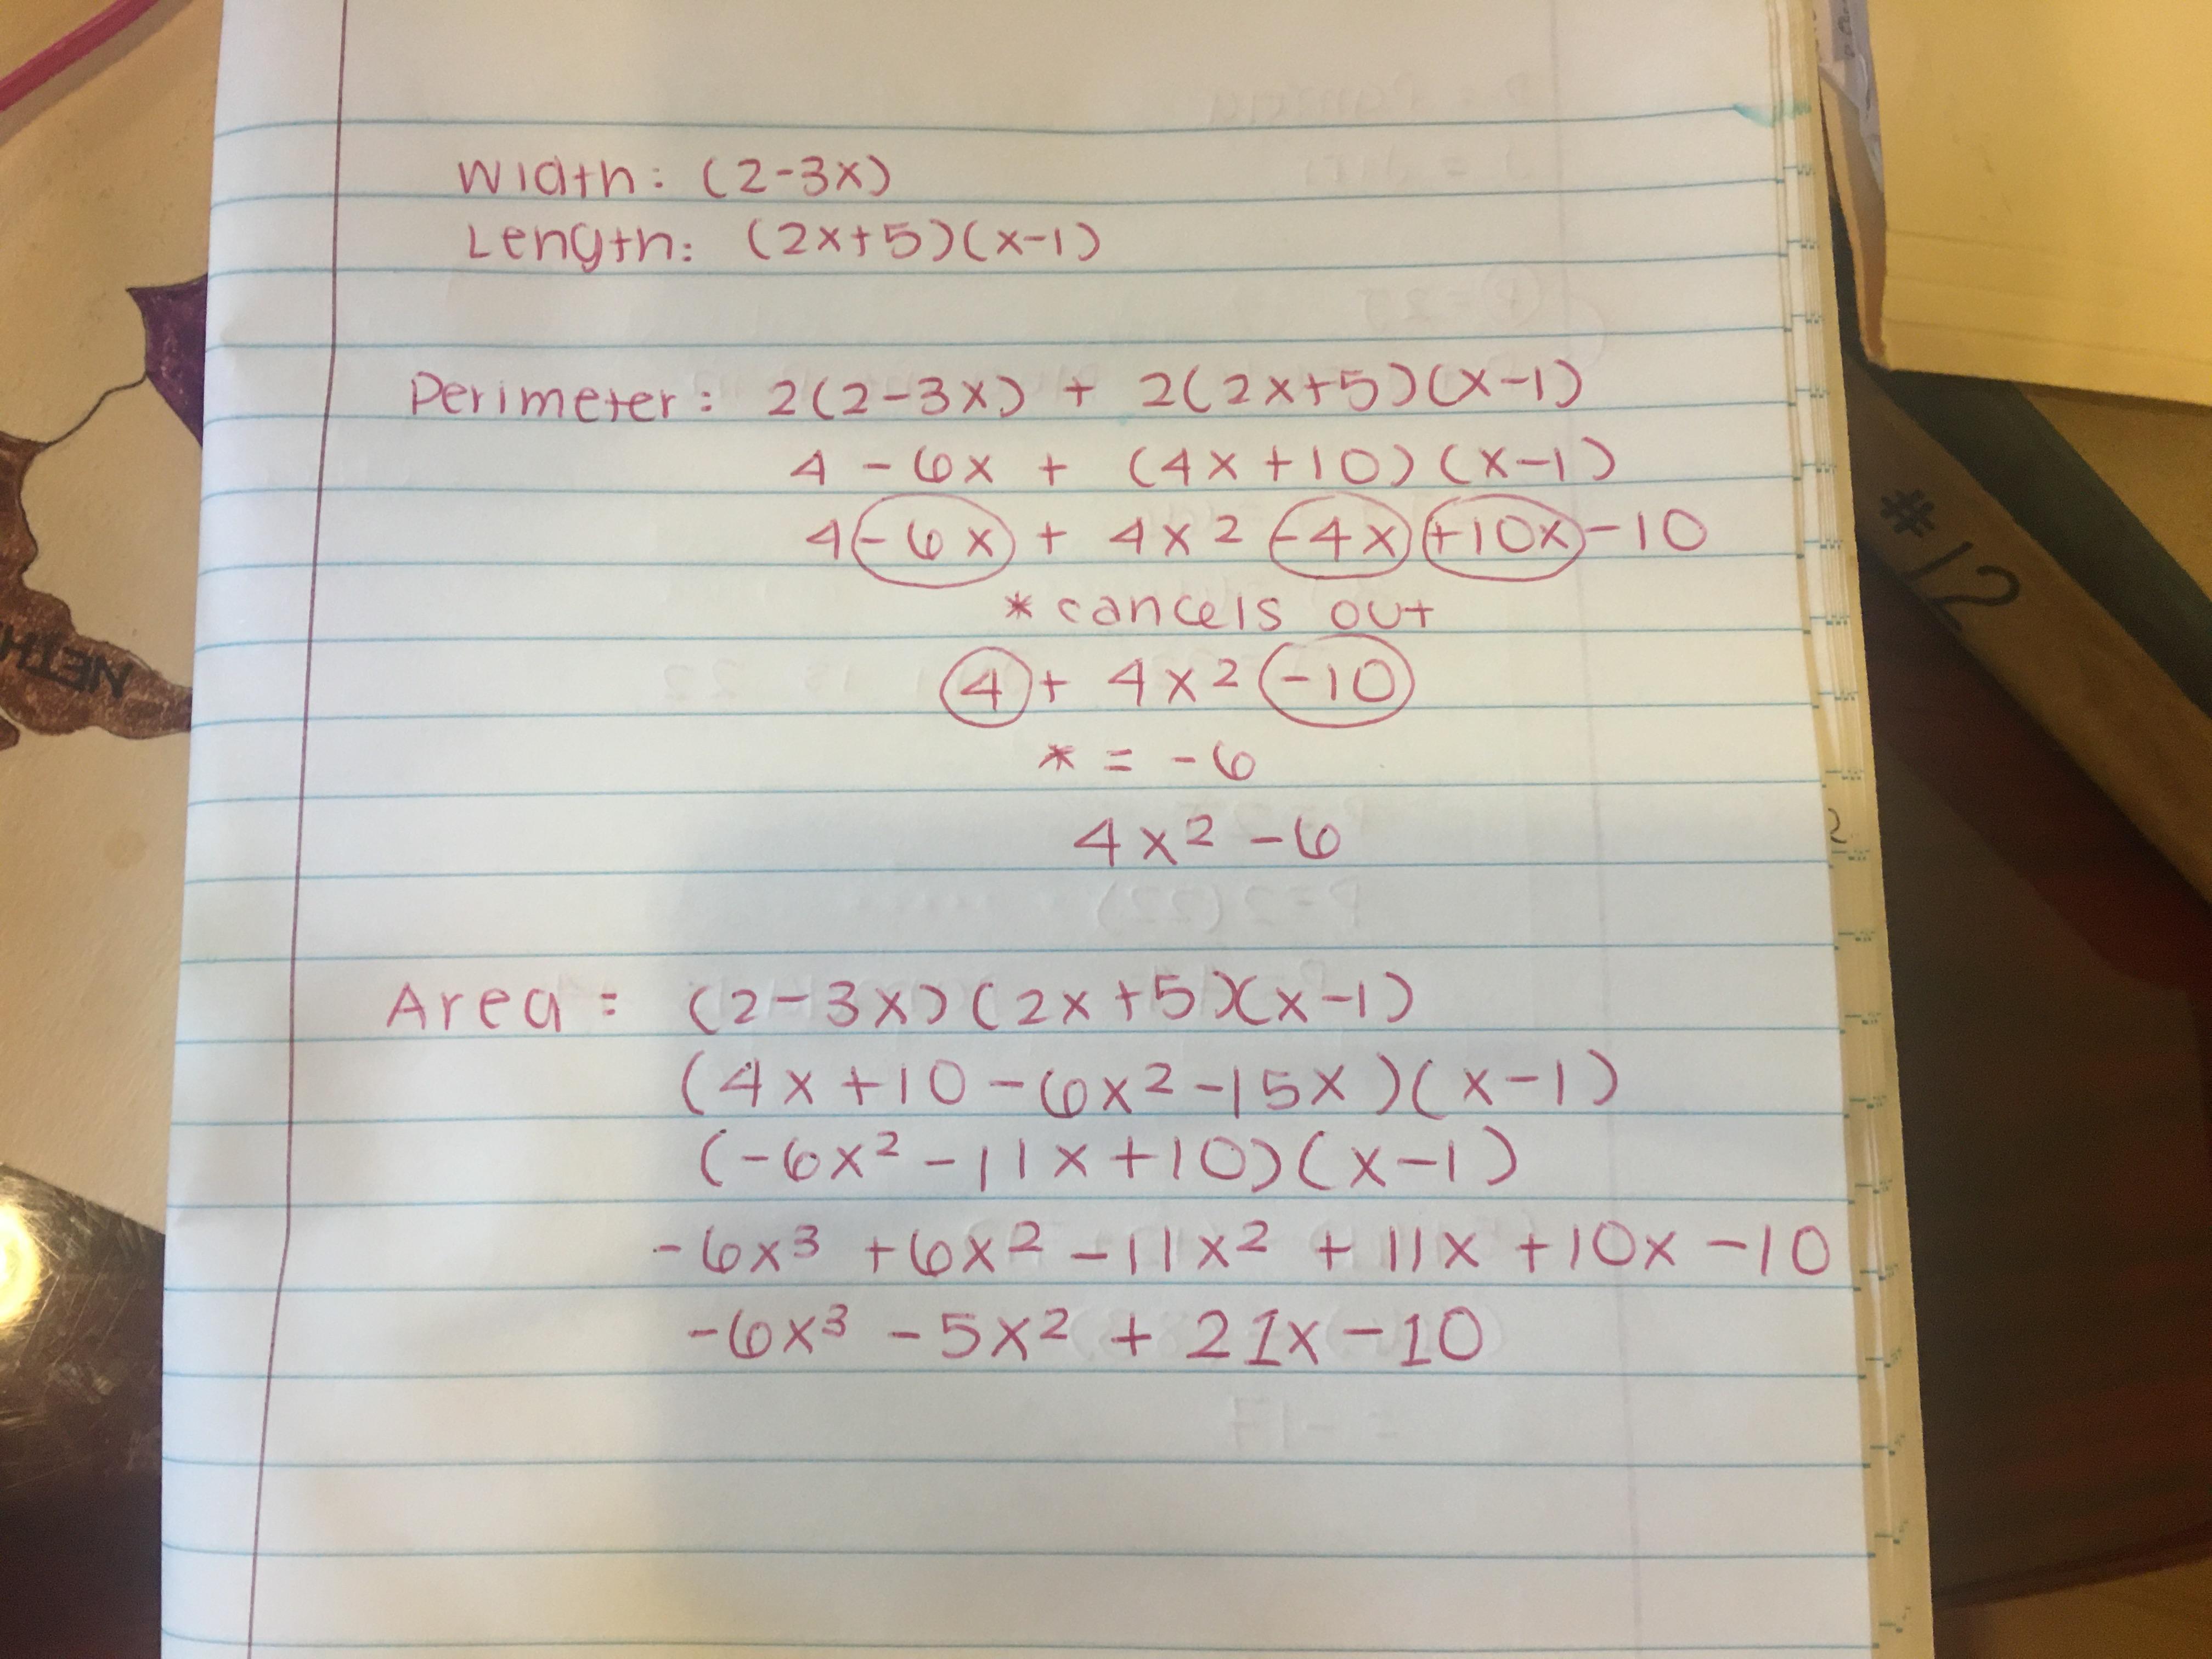 Width: (2-3x)
Length: (2x+5)(x-1)
Perimeter: 2(2-3x) + 2(2x+5)(x-1)
4 - 6x + (4x+10)(x-1)
4 -6x + 4x² -4x +10x -10
* cancels out
4 + 4x² -10
* = -6
4x² -6
Area: (2-3x)(2x+5)(x-1)
(4x+10-6x²-15x)(x-1)
(-6x²-11x+10)(x-1)
-6x³ +6x² -11x² + 11x +10x -10
-6x³ -5x² + 21x -10
#12
NETH
2